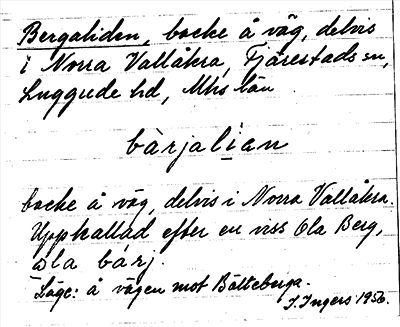 Bergaliden, backe å väg, delvis
i Norra Vallåkra, Fjärestads sn,
Luggude hd, Mhs län
bàrjalian
backe å väg, delvis i Norra Vallåkra.
Uppkallad efter en viss Ola Berg,
ola bárj.
Läge: å vägen mot Bälteberga.
I. Ingers 1956.